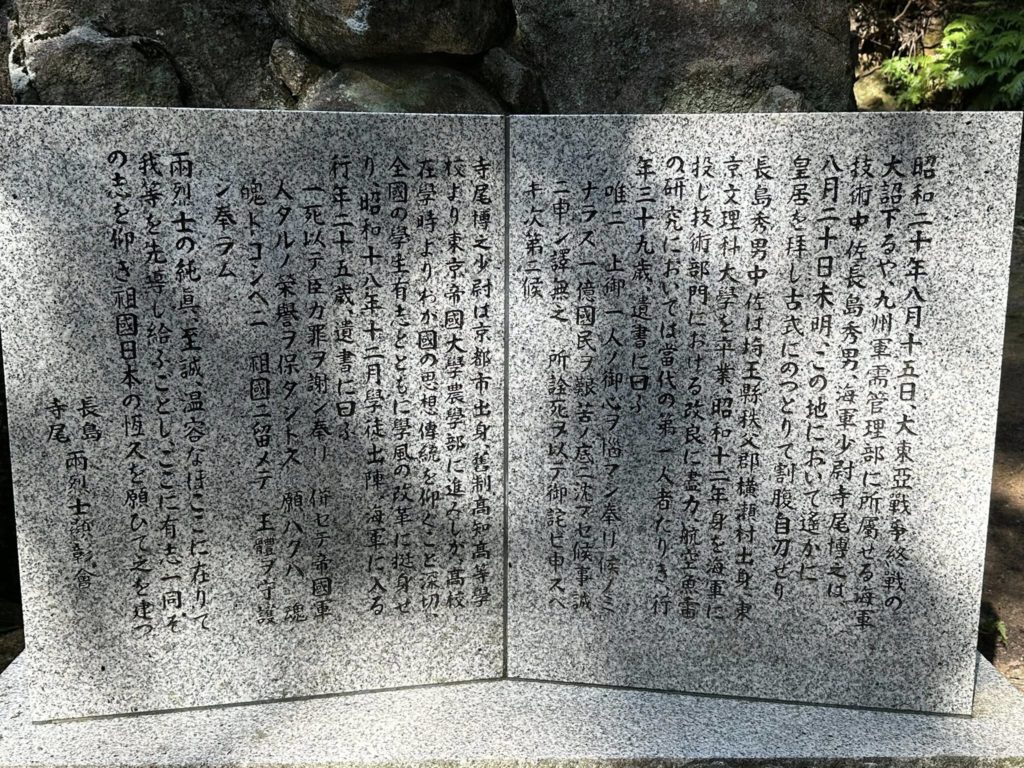 昭和二十年八月十五日、大東亞戰争終戰の
大詔下るや、九州軍需管理部に所屬せる海軍
技術中佐長島秀男、海軍少尉寺尾博之は
八月二十日未明、この地において遙かに
皇居を拝し古式にのつとりて割腹自刃せり
長島秀男中佐は埼玉縣秩父郡横瀬村出身、東
京文理科大學を卒業、昭和十二年身を海軍に
投し技術部門における改良に盡力、航空魚雷
の研究においては當代の第一人者たりき、行
年三十九歳、遺書に曰ふ
唯ニ 上御一人ノ御心ヲ悩マシ奉リ候ノミ
ナラス一億國民ヲ艱苦ノ底ニ沈マセ候事誠
ニ申シ譯無之 所詮死ヲ以テ御詫ビ申スベ
キ次第ニ候
寺尾博之少尉は京都市出身、舊制高知高等學
校より東京帝國大學農學部に進みしが、高校
在學時よりわが國の思想傳統を仰ぐこと深切
全國の學生有志とともに學風の改革に挺身せ
り 昭和十八年十二月學徒出陣、海軍に入る
行年二十五歳、遺書に曰ふ
一死以テ臣カ罪ヲ謝シ奉リ 併セテ帝國軍
人タルノ榮譽ヲ保タントス 願ハクハ 魂
魄トコシヘニ 祖國ニ留メテ 玉體ヲ守護
シ奉ラム
兩烈士の純眞、至誠、温容なほここに在りて
我等を先導し給ふごとし、ここに有志一同そ
の志を仰ぎ祖國日本の恆久を願ひて之を建つ
長島
寺尾 兩烈士顕彰會